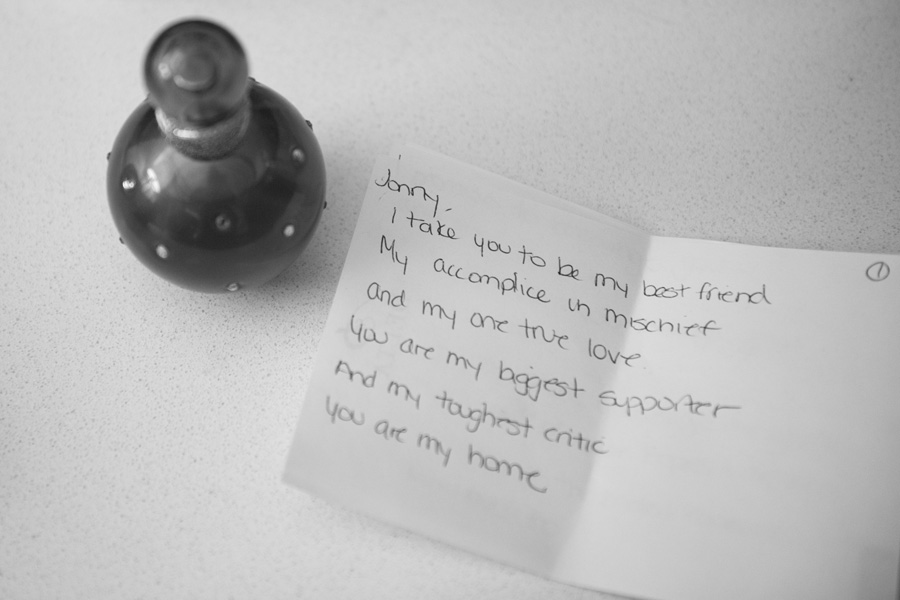 Jonny,
I take you to be my best friend
My accomplice in mischief
and my one true love.
You are my biggest supporter
And my toughest critic
You are my home
1